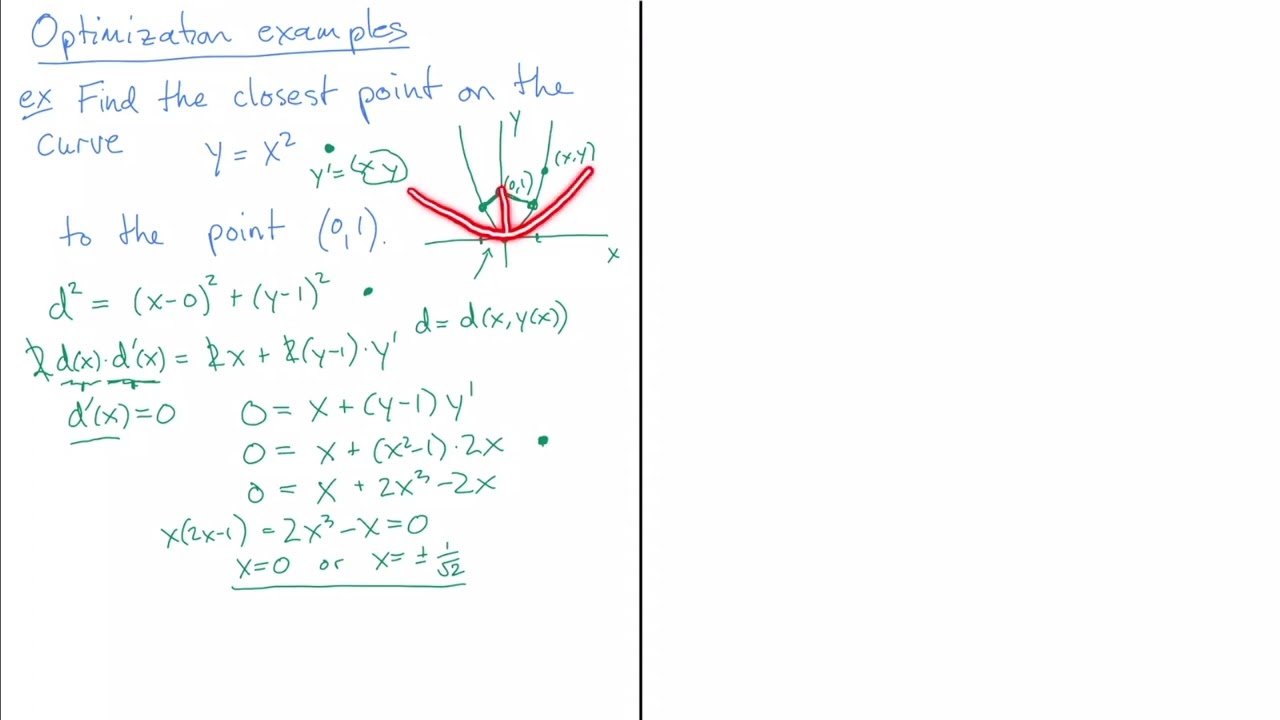 Optimization examples
ex Find the closest point on the
curve y = x²
y' = (x,y)
to the point (0,1).
y
(x,y)
(0,1)
x
d² = (x-0)² + (y-1)²
d = d(x, y(x))
2 d(x)·d'(x) = 2x + 2(y-1)·y'
d'(x)=0 0 = x + (y-1) y'
0 = x + (x²-1)·2x
0 = x + 2x³ - 2x
x(2x-1) = 2x³ - x = 0
x=0 or x= ± 1/√2